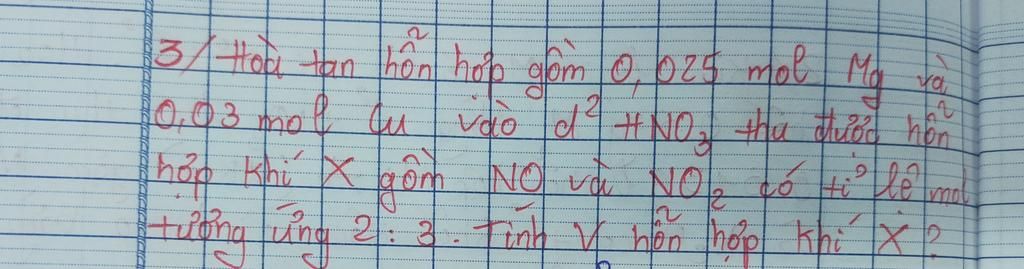 3/ Hoà tan hỗn hợp gồm 0,025 mol Mg và
0,03 mol Cu vào d² HNO₃ thu được hỗn
hợp khí X gồm NO và NO₂ có tỉ lệ mol
tương ứng 2:3. Tính V hỗn hợp khí X?